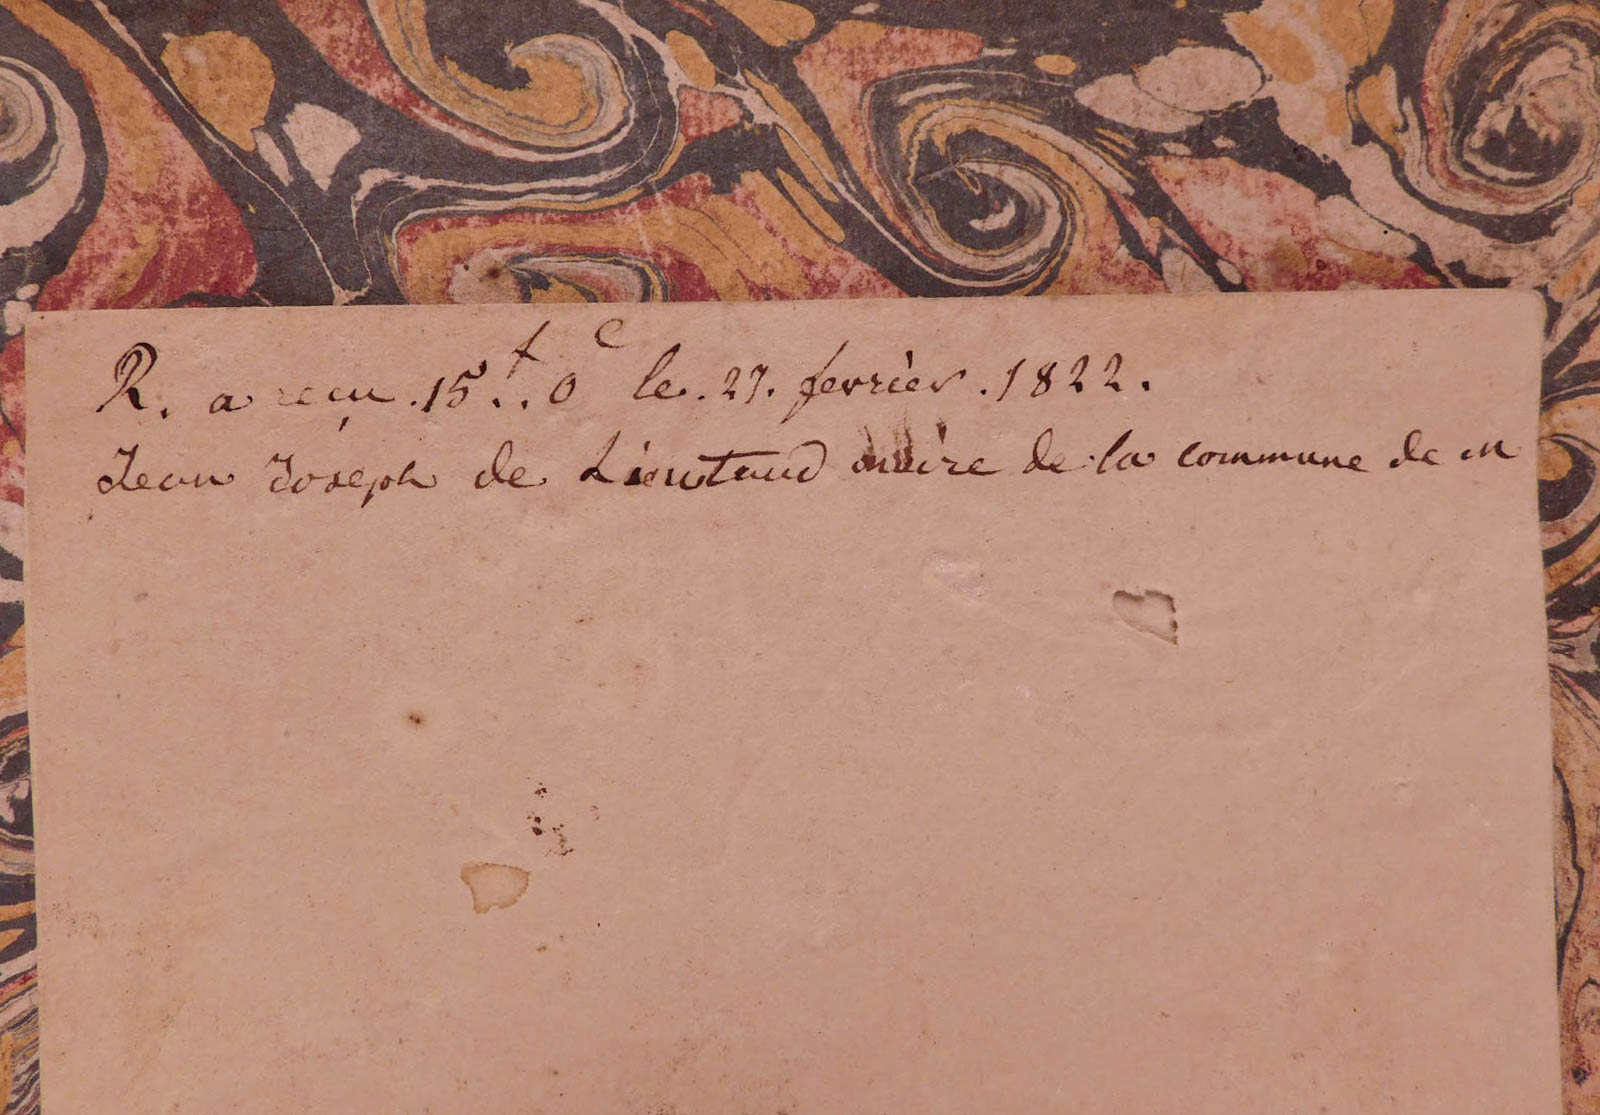 R. a reçu .15.f. 0c le .27. fevrièr .1822.
Jean Joséph de Lieutaud maire de la commune de m